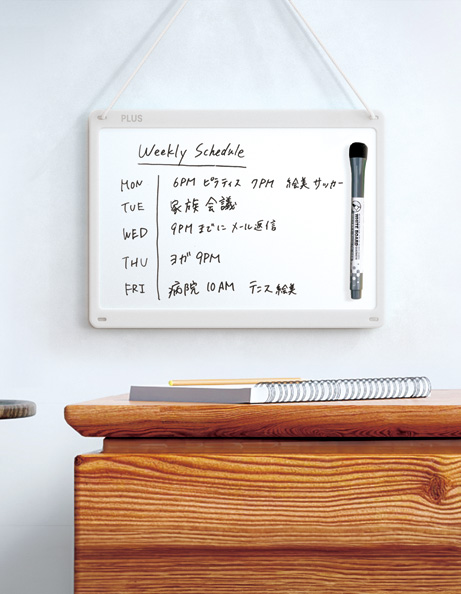 PLUS
Weekly Schedule
MON 6PM ピラティス 7PM 絵美 サッカー
TUE 家族会議
WED 9PM までに メール返信
THU ヨガ 9PM
FRI 病院 10AM テニス 絵美
WHITE BOARD